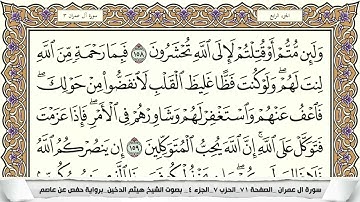 الجزء الرابع
سورة آل عمران ٣
وَلَئِن مُّتُّمْ أَوْ قُتِلْتُمْ لَإِلَى ٱللَّهِ تُحْشَرُونَ ١٥٨ فَبِمَا رَحْمَةٍ مِّنَ ٱللَّهِ
لِنتَ لَهُمْ وَلَوْ كُنتَ فَظًّا غَلِيظَ ٱلْقَلْبِ لَٱنفَضُّوا۟ مِنْ حَوْلِكَ
فَٱعْفُ عَنْهُمْ وَٱسْتَغْفِرْ لَهُمْ وَشَاوِرْهُمْ فِى ٱلْأَمْرِ فَإِذَا عَزَمْتَ
فَتَوَكَّلْ عَلَى ٱللَّهِ إِنَّ ٱللَّهَ يُحِبُّ ٱلْمُتَوَكِّلِينَ ١٥٩ إِن يَنصُرْكُمُ ٱللَّهُ
سورة آل عمران _ الصفحة ٧١_ الحزب ٧_ الجزء ٤ _ بصوت الشيخ هيثم الدخين_ برواية حفص عن عاصم